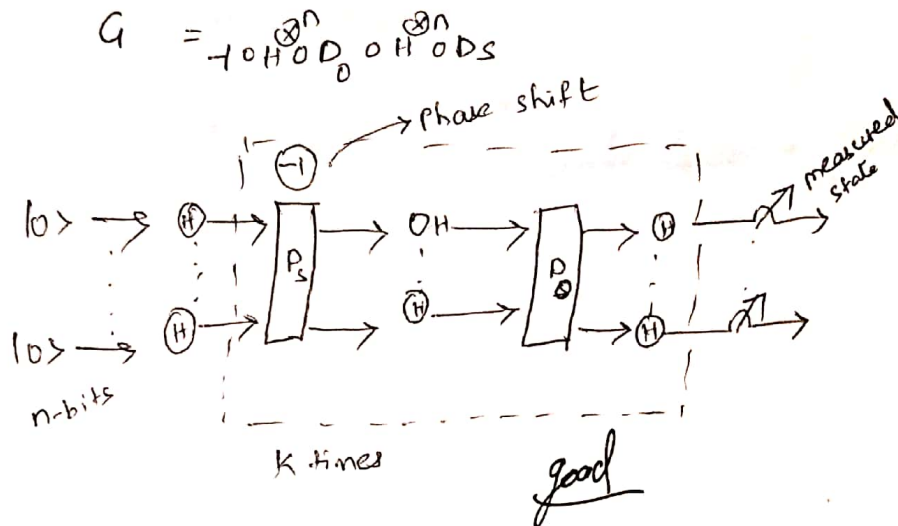 G = -1 o H⊗n o D0 o H⊗n o Ds
phase shift
-1
|0> H Ps OH D0 H measured state
|0> H H H
n-bits
K times
good